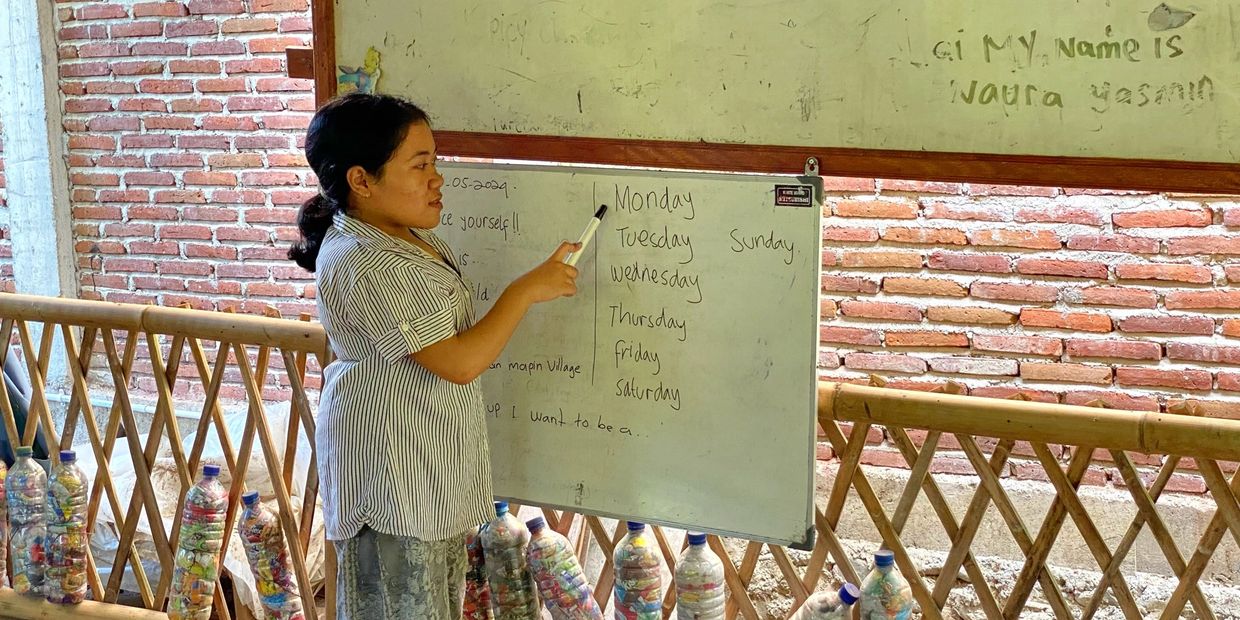 My Name is
Naura yasmin
-05-2024.
ce yourself!!
is...
ld
an mapin Village
up I want to be a...
Monday
Tuesday
Wednesday
Thursday
Friday
Saturday
Sunday.